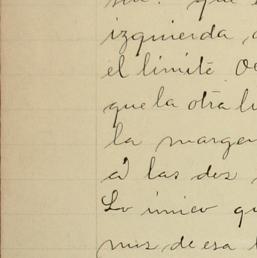 que
izquierda,
el limite
que la otra
la margen
á las dos
Lo único
mis, de esa